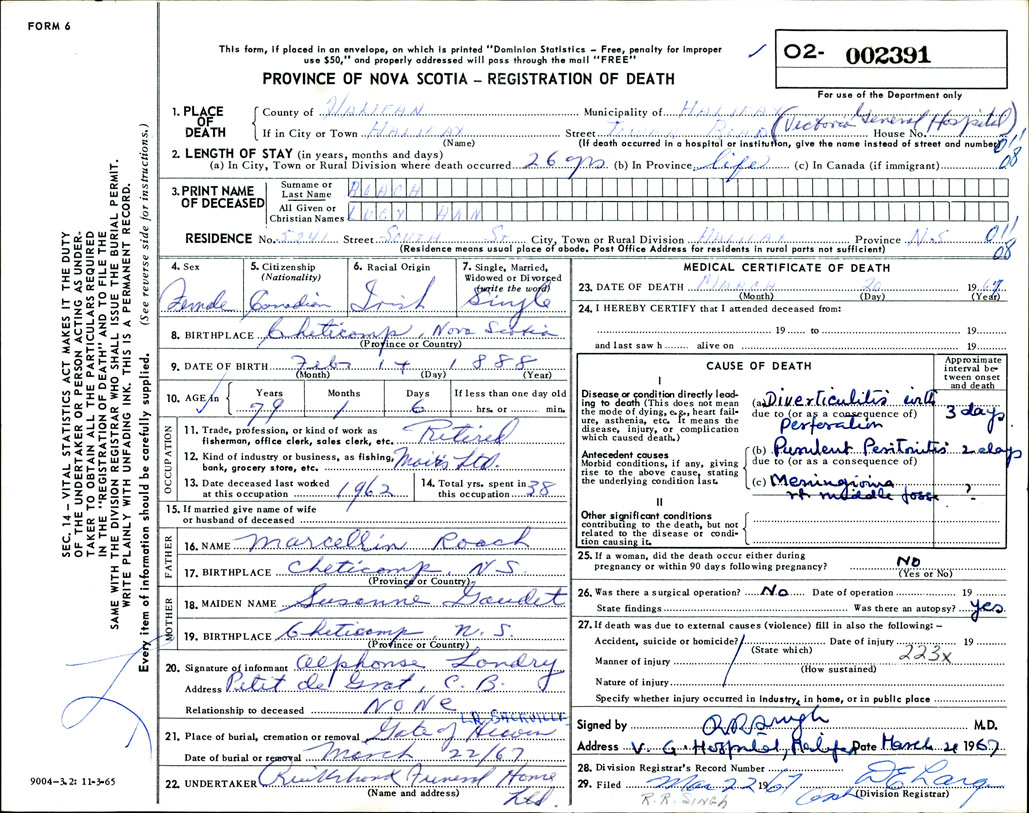 FORM 6
This form, if placed in an envelope, on which is printed "Dominion Statistics – Free, penalty for improper
use $50," and properly addressed will pass through the mail "FREE"
PROVINCE OF NOVA SCOTIA – REGISTRATION OF DEATH
O2- 002391
For use of the Department only
1. PLACE OF DEATH
County of HALIFAX Municipality of HALIFAX
If in City or Town HALIFAX Street ROAD (Victoria General Hospital) House No.
(Name) (If death occurred in a hospital or institution, give the name instead of street and number)
011
08
2. LENGTH OF STAY (in years, months and days)
(a) In City, Town or Rural Division where death occurred 26 yrs. (b) In Province life (c) In Canada (if immigrant)
3. PRINT NAME OF DECEASED
Surname or Last Name ROACH
All Given or Christian Names LUCY ANN
RESIDENCE No. 5241 Street SOUTH St. City, Town or Rural Division HALIFAX Province N.S
(Residence means usual place of abode. Post Office Address for residents in rural parts not sufficient)
011
08
4. Sex Female
5. Citizenship (Nationality) Canadian
6. Racial Origin Irish
7. Single, Married, Widowed or Divorced (write the word) Single
8. BIRTHPLACE Cheticamp, Nova Scotia
(Province or Country)
9. DATE OF BIRTH Feb 14 1888
(Month) (Day) (Year)
10. AGE in Years 79 Months 1 Days 6 If less than one day old hrs. or min.
OCCUPATION
11. Trade, profession, or kind of work as fisherman, office clerk, sales clerk, etc. Retired
12. Kind of industry or business, as fishing, bank, grocery store, etc. Moirs Ltd.
13. Date deceased last worked at this occupation 1962
14. Total yrs. spent in this occupation 38
15. If married give name of wife or husband of deceased
FATHER
16. NAME Marcellin Roach
17. BIRTHPLACE Cheticamp, NS
(Province or Country)
MOTHER
18. MAIDEN NAME Susanne Gaudet
19. BIRTHPLACE Cheticamp, N.S.
(Province or Country)
20. Signature of informant Alphonse Landry
Address Petit de Grat, C. B.
Relationship to deceased NONE
21. Place of burial, cremation or removal Gate of Heaven L.R. SACKVILLE
Date of burial or removal March 22/67
22. UNDERTAKER Funeral Home Ltd.
(Name and address)
MEDICAL CERTIFICATE OF DEATH
23. DATE OF DEATH MARCH 20 1967
(Month) (Day) (Year)
24. I HEREBY CERTIFY that I attended deceased from:
19 to 19
and last saw h alive on 19
CAUSE OF DEATH
Approximate interval between onset and death
I
Disease or condition directly leading to death (This does not mean the mode of dying, e.g., heart failure, asthenia, etc. It means the disease, injury, or complication which caused death.)
(a) Diverticulitis with
due to (or as a consequence of)
perforation 3 days
Antecedent causes
Morbid conditions, if any, giving rise to the above cause, stating the underlying condition last.
(b) Purulent Peritonitis 2 days
due to (or as a consequence of)
(c) Meningioma
rt middle fossa ?
II
Other significant conditions
contributing to the death, but not related to the disease or condition causing it.
25. If a woman, did the death occur either during pregnancy or within 90 days following pregnancy? No
(Yes or No)
26. Was there a surgical operation? No Date of operation 19
State findings Was there an autopsy? yes
27. If death was due to external causes (violence) fill in also the following:–
Accident, suicide or homicide? Date of injury 19
(State which)
223x
Manner of injury
(How sustained)
Nature of injury
Specify whether injury occurred in Industry, in home, or in public place
Signed by R R Singh M.D.
Address V. G. Hospital, Halifax Date March 21 1967
28. Division Registrar's Record Number
29. Filed Mar 22 1967
(Division Registrar)
R.R. SINGH
SEC. 14 – VITAL STATISTICS ACT MAKES IT THE DUTY
OF THE UNDERTAKER OR PERSON ACTING AS UNDER-
TAKER TO OBTAIN ALL THE PARTICULARS REQUIRED
IN THE "REGISTRATION OF DEATH" AND TO FILE THE
SAME WITH THE DIVISION REGISTRAR WHO SHALL ISSUE THE BURIAL PERMIT.
WRITE PLAINLY WITH UNFADING INK. THIS IS A PERMANENT RECORD.
Every item of information should be carefully supplied. (See reverse side for instructions.)
9004-3.2: 11-3-65